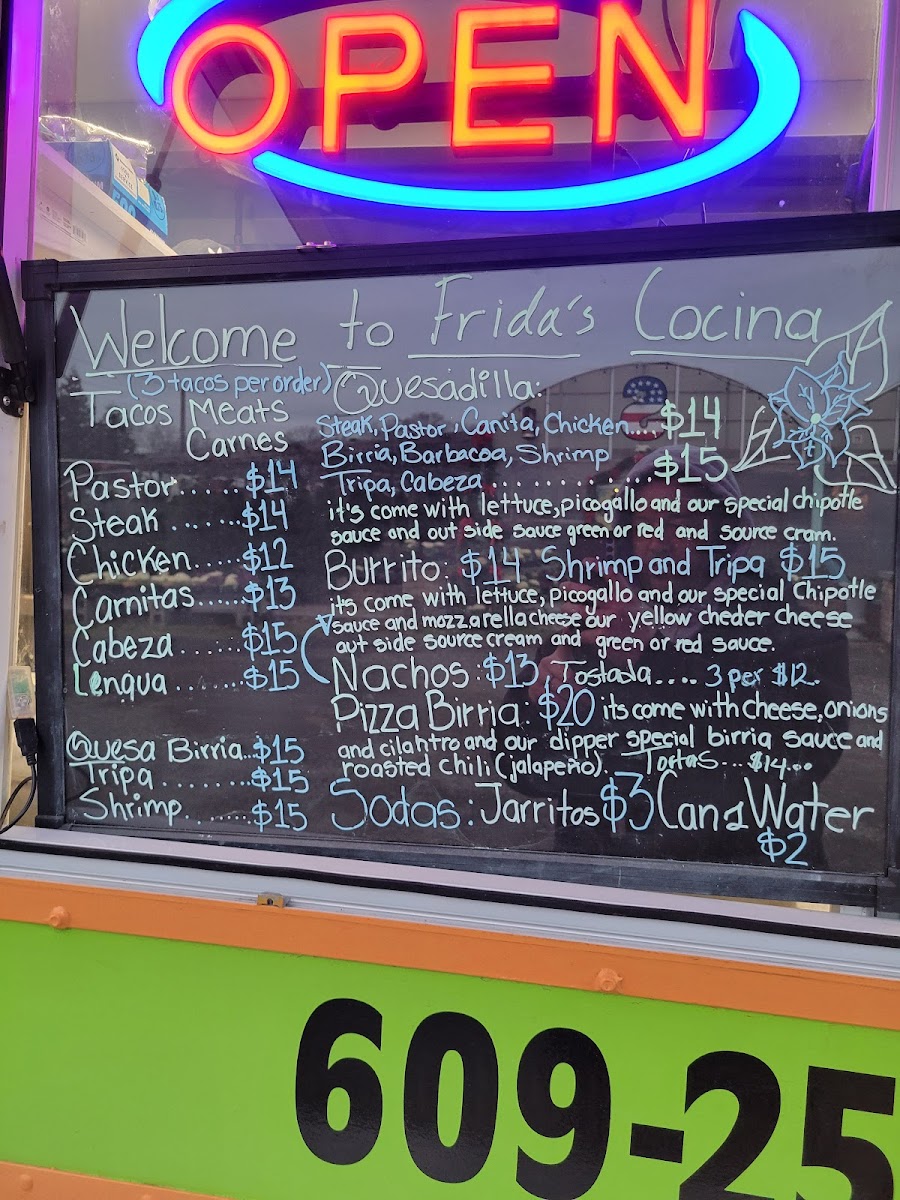 OPEN
Welcome to Frida's Cocina
(3 tacos per order)
Tacos Meats
Carnes
Pastor......$14
Steak.......$14
Chicken....$12
Carnitas.....$13
Cabeza......$15
Lengua........$15
Quesa Birria...$15
Tripa........$15
Shrimp........$15
Quesadilla:
Steak, Pastor, Canita, Chicken....$14
Birria, Barbacoa, Shrimp
Tripa, Cabeza..............$15
it's come with lettuce, picogallo and our special chipotle
sauce and out side sauce green or red and source cram.
Burrito: $14 Shrimp and Tripa $15
its come with lettuce, picogallo and our special Chipotle
sauce and mozzarella cheese our yellow cheder cheese
out side source cream and green or red sauce.
Nachos: $13 Tostada.... 3 per $12.
Pizza Birria: $20 its come with cheese, onions
and cilahtro and our dipper special birria sauce and
roasted chili (jalapeño). Tortas...$14...
Sodas: Jarritos $3 Can Water
$2
609-25